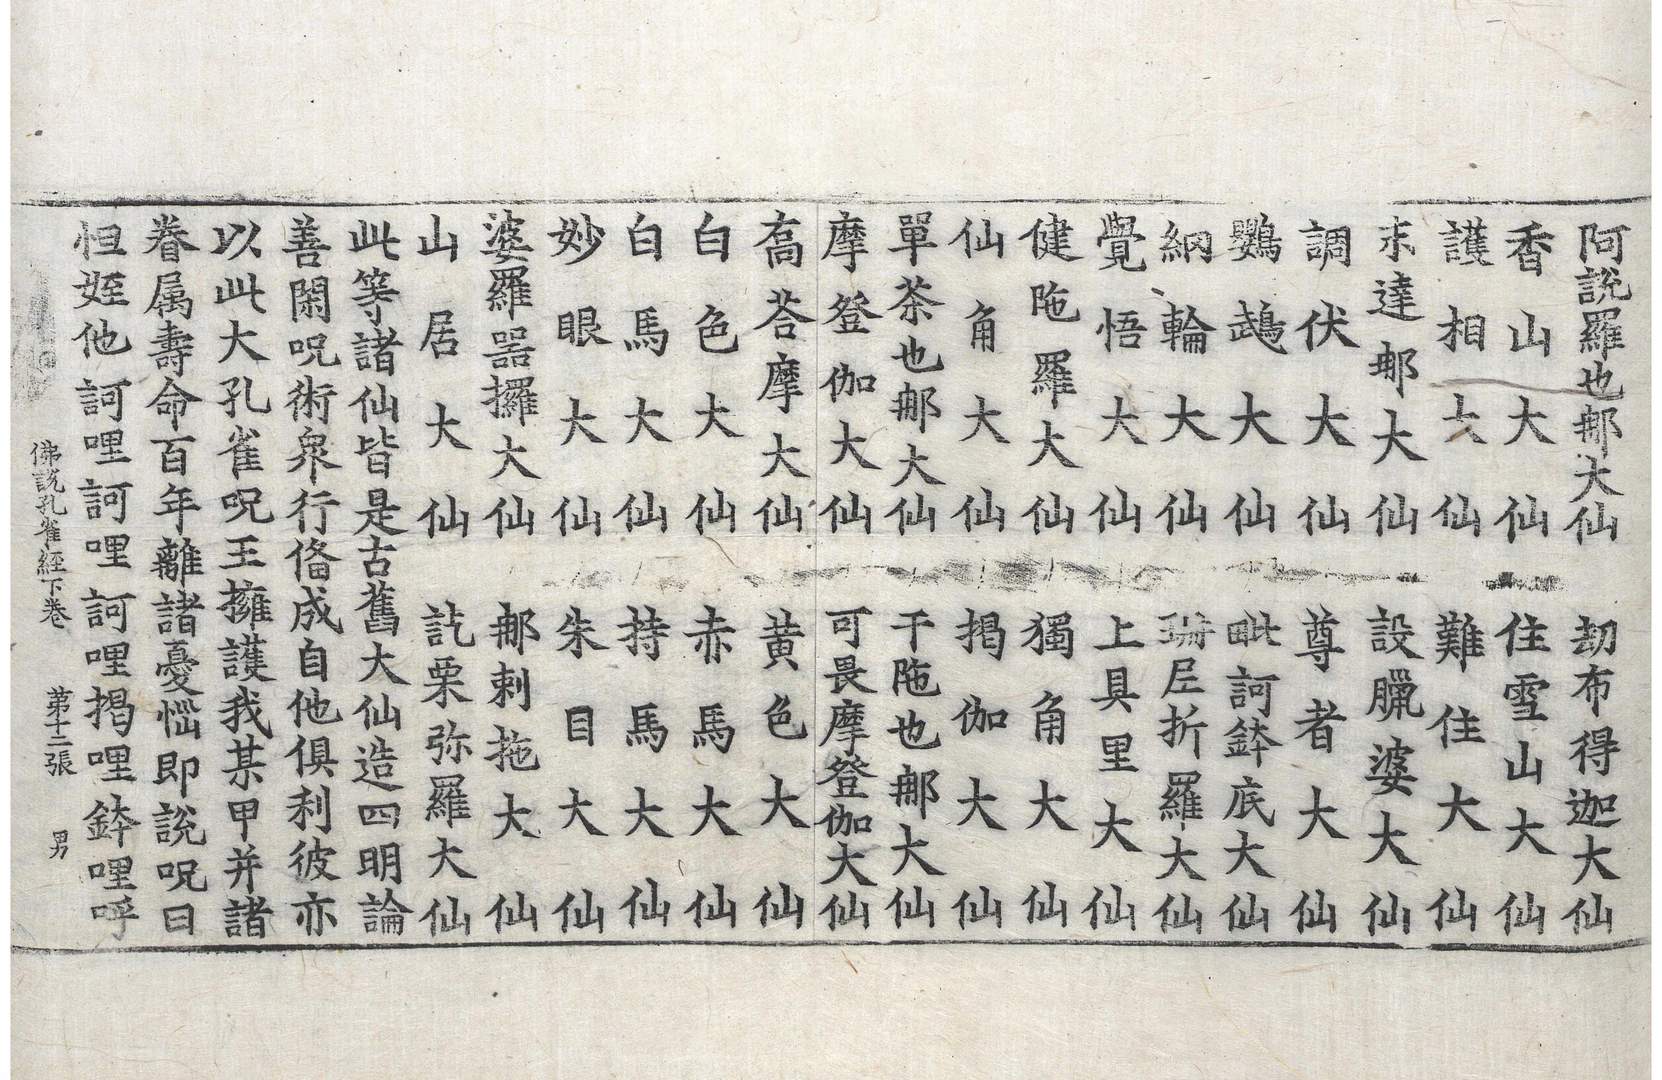 阿說羅也那大仙　刧布得迦大仙
香山大仙　住雪山大仙
護相大仙　難住大仙
末達那大仙　設臘婆大仙
調伏大仙　尊者大仙
鸚鵡大仙　毗訶鉢底大仙
網輪大仙　珊𡰱折羅大仙
覺悟大仙　上具里大仙
健陁羅大仙　獨角大仙
仙角大仙　揭伽大仙
單茶也那大仙　干陁也那大仙
摩登伽大仙　可畏摩登伽大仙
喬荅摩大仙　黃色大仙
白色大仙　赤馬大仙
白馬大仙　持馬大仙
妙眼大仙　朱目大仙
婆羅器攞大仙　那剌拖大仙
山居大仙　訖栗弥羅大仙
此等諸仙皆是古舊大仙造四明論
善閑呪術衆行俻成自他俱利彼亦
以此大孔雀呪王擁護我某甲并諸
眷属壽命百年離諸憂惱即說呪曰
怛姪他訶哩訶哩訶哩揭哩鉢哩呼
佛說孔雀經下卷　第十二張　男